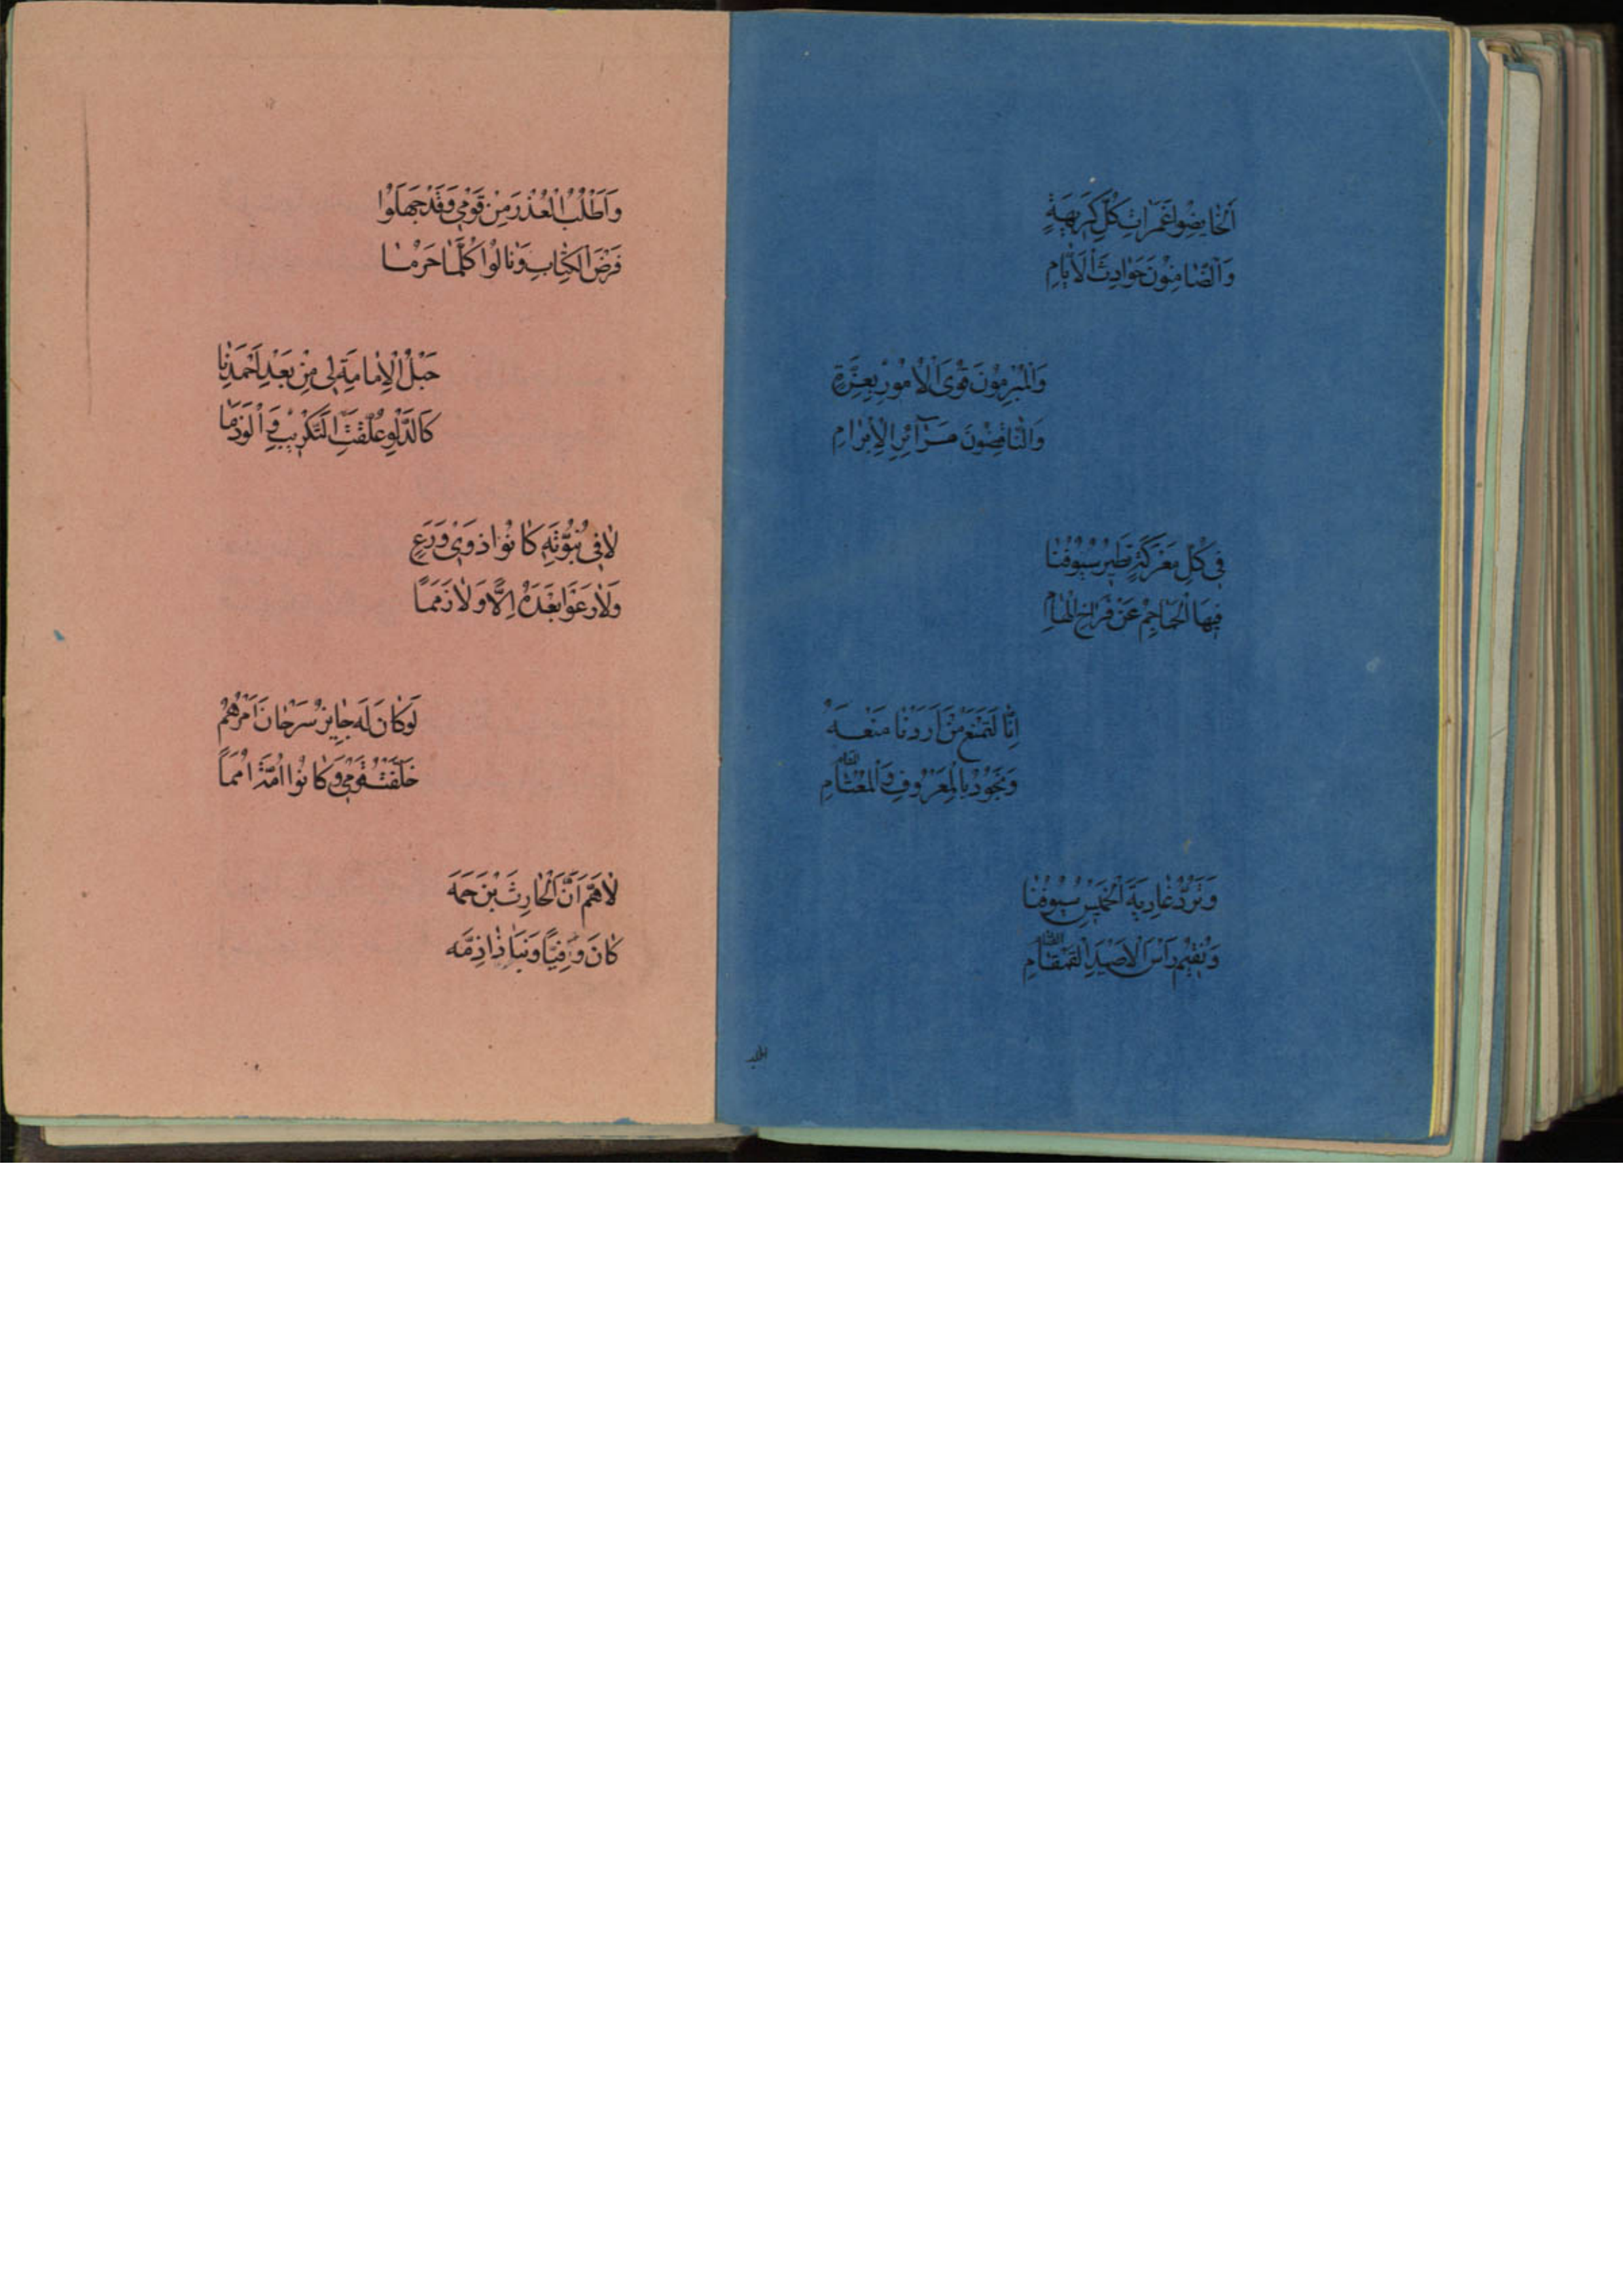 اَلْخٰائِضُوا غَمَرٰاتِ كُلِّ كَرِيهَةٍ
وَالضّٰامِنُونَ حَوٰادِثَ الْاَيّٰامِ
وَالْمُبْرِمُونَ قُوَى الْاُمُورِ بِعِزَّةٍ
وَالنّٰاقِضُونَ مَرٰآئِرَ الْاِبْرٰامِ
فِي كُلِّ مَعْرَكَةٍ تُطِيرُ سُيُوفُنٰا
فِيهَا الْجَمٰاجِمَ عَنْ فِرٰاخِ الْهٰامِ
اِنّٰا لَنَمْنَعُ مَنْ اَرَدْنٰا مَنْعَهُ
وَنَجُودُ بِالْمَعْرُوفِ وَالْمُعْتٰامِ
وَتَرُدُّ عٰادِيَةَ الْخَمِيسِ سُيُوفُنٰا
وَنُقِيمُ رَأْسَ الْاَصْيَدِ الْقَمْقٰامِ
وَاَطْلُبُ الْعُذْرَ مِنْ قَوْمِي وَقَدْ جَهِلُوا
فَرْضَ الْكِتٰابِ وَنٰالُوا كُلَّمٰا حَرُمٰا
حَبْلُ الْاِمٰامَةِ لِي مِنْ بَعْدِ اَحْمَدِنٰا
كَالدَّلْوِ عُلِّقَتِ التَّكْرِيبَ وَالْوَذَمٰا
لٰا فِي نُبُوَّتِهِ كٰانُوا ذَوِي وَرَعٍ
وَلٰا رَعَوْا بَعْدَهُ اِلًّا وَلٰا ذِمَمًا
لَوْ كٰانَ لِي جٰائِزٌ سَرْحٰانَ اَمْرِهُمُ
خَلَّفْتُ قَوْمِي وَكٰانُوا اُمَّةً اُمَمًا
لٰاهُمَّ اِنَّ الْحٰارِثَ بْنَ صِمَّه
كٰانَ وَفِيًّا وَبِنٰا ذٰا ذِمَّه